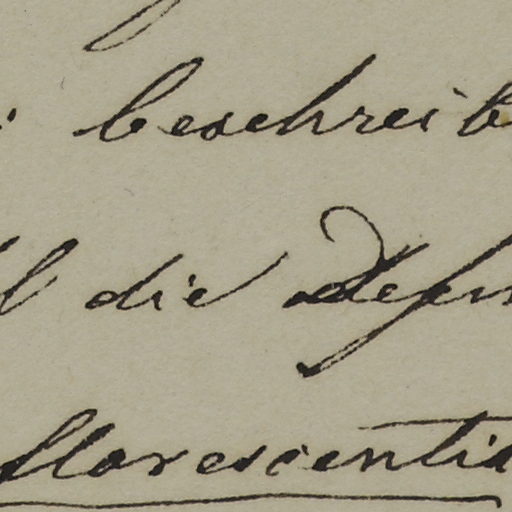 beschreib
die Defin
florescentia